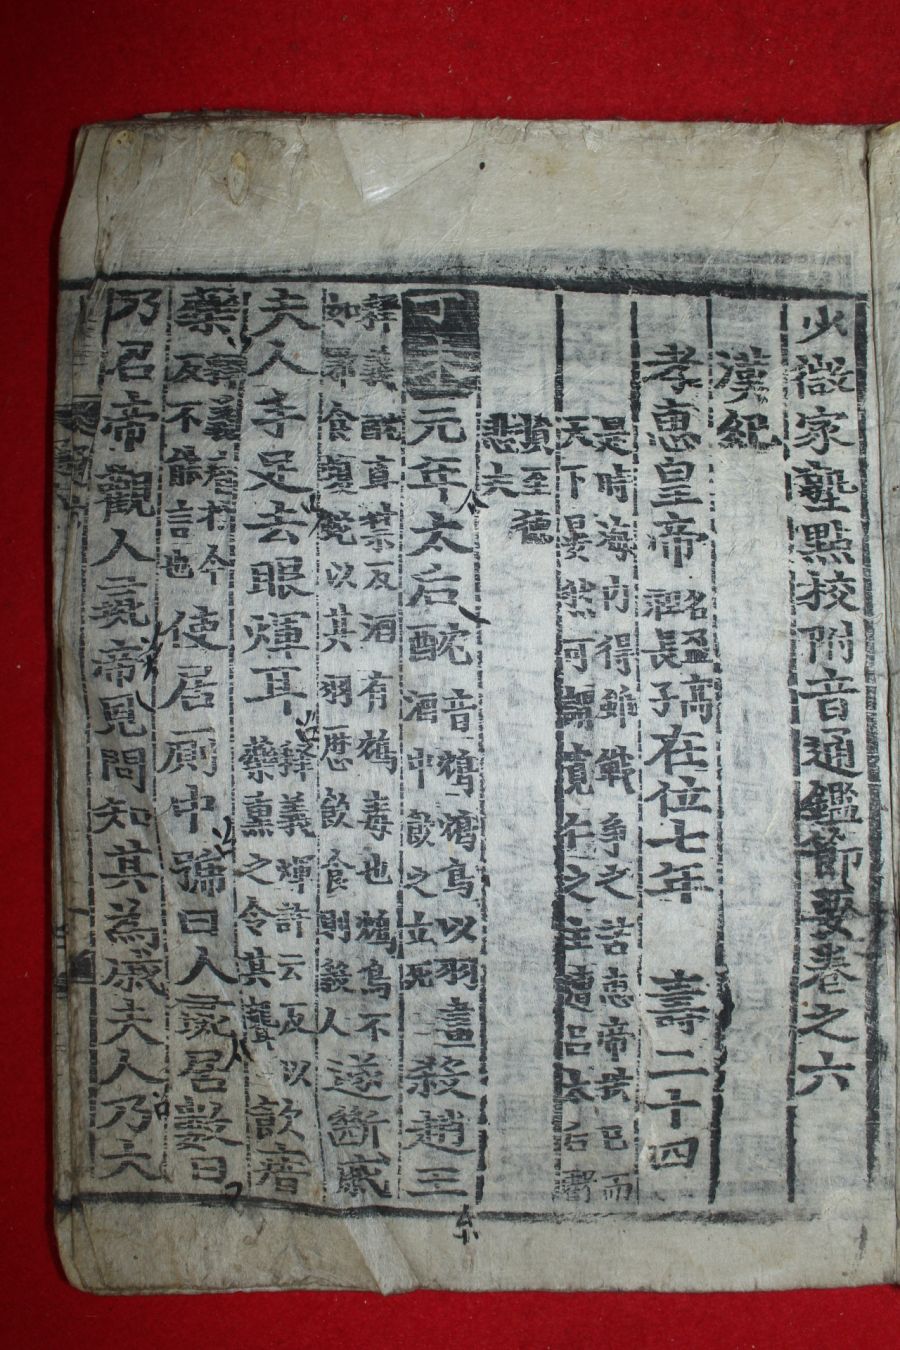 少微家塾點校附音通鑑節要卷之六
漢紀
孝惠皇帝 名盈高祖長子 在位七年 壽二十四
是時海内得離戰爭之苦惠帝拱己而
天下晏然何虧寬仁之主遭呂太后虧
損至德
悲夫
丁未元年太后酖 音鴆鴆鳥以羽畫
酒中飮之立死 殺趙王
釋義酖直禁反酒有鴆毒也鴆鳥不
如帝食以其羽歷飮食則殺人 遂斷戚
夫人手足去眼煇耳 釋義煇許云反以
藥熏之令其聾 飮瘖
藥 釋義瘖於今
反不能言也 使居厠中號曰人彘居數日
乃召帝觀人彘帝見問知其爲戚夫人乃大